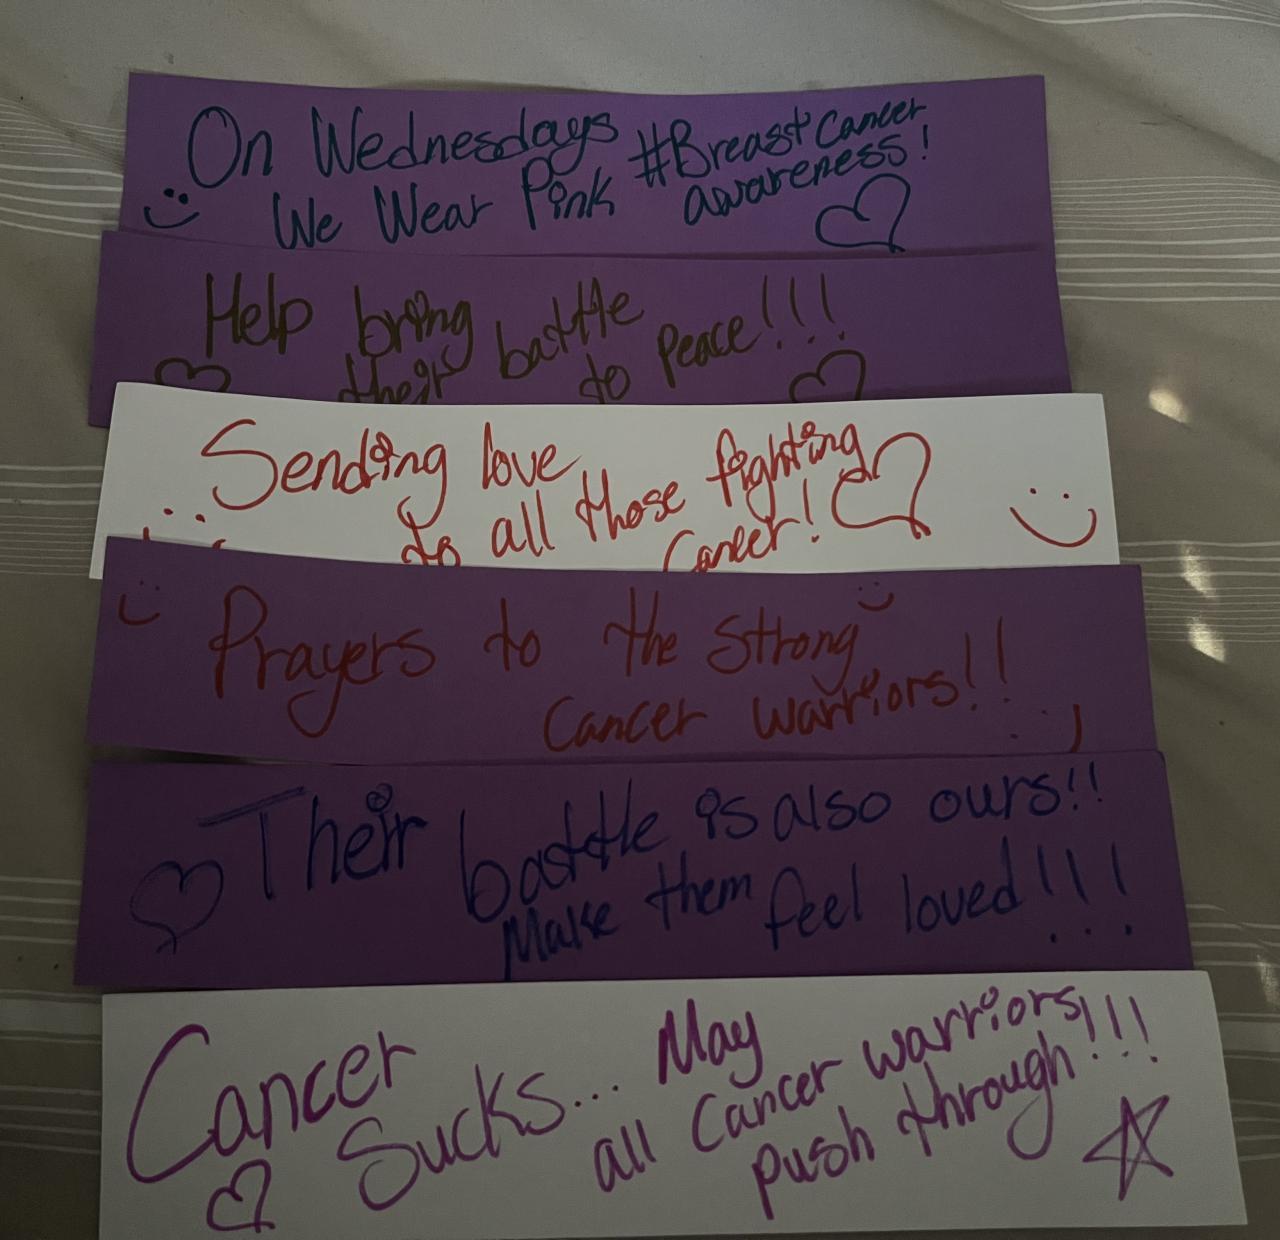 On Wednesdays
We Wear Pink
#Breast Cancer
awareness!
Help bring
their battle
to peace!!!
Sending love
to all those fighting
Cancer!
Prayers to the strong
Cancer warriors!!
Their battle is also ours!!
Make them feel loved!!!
Cancer
Sucks... May
all Cancer warriors
push through!!!